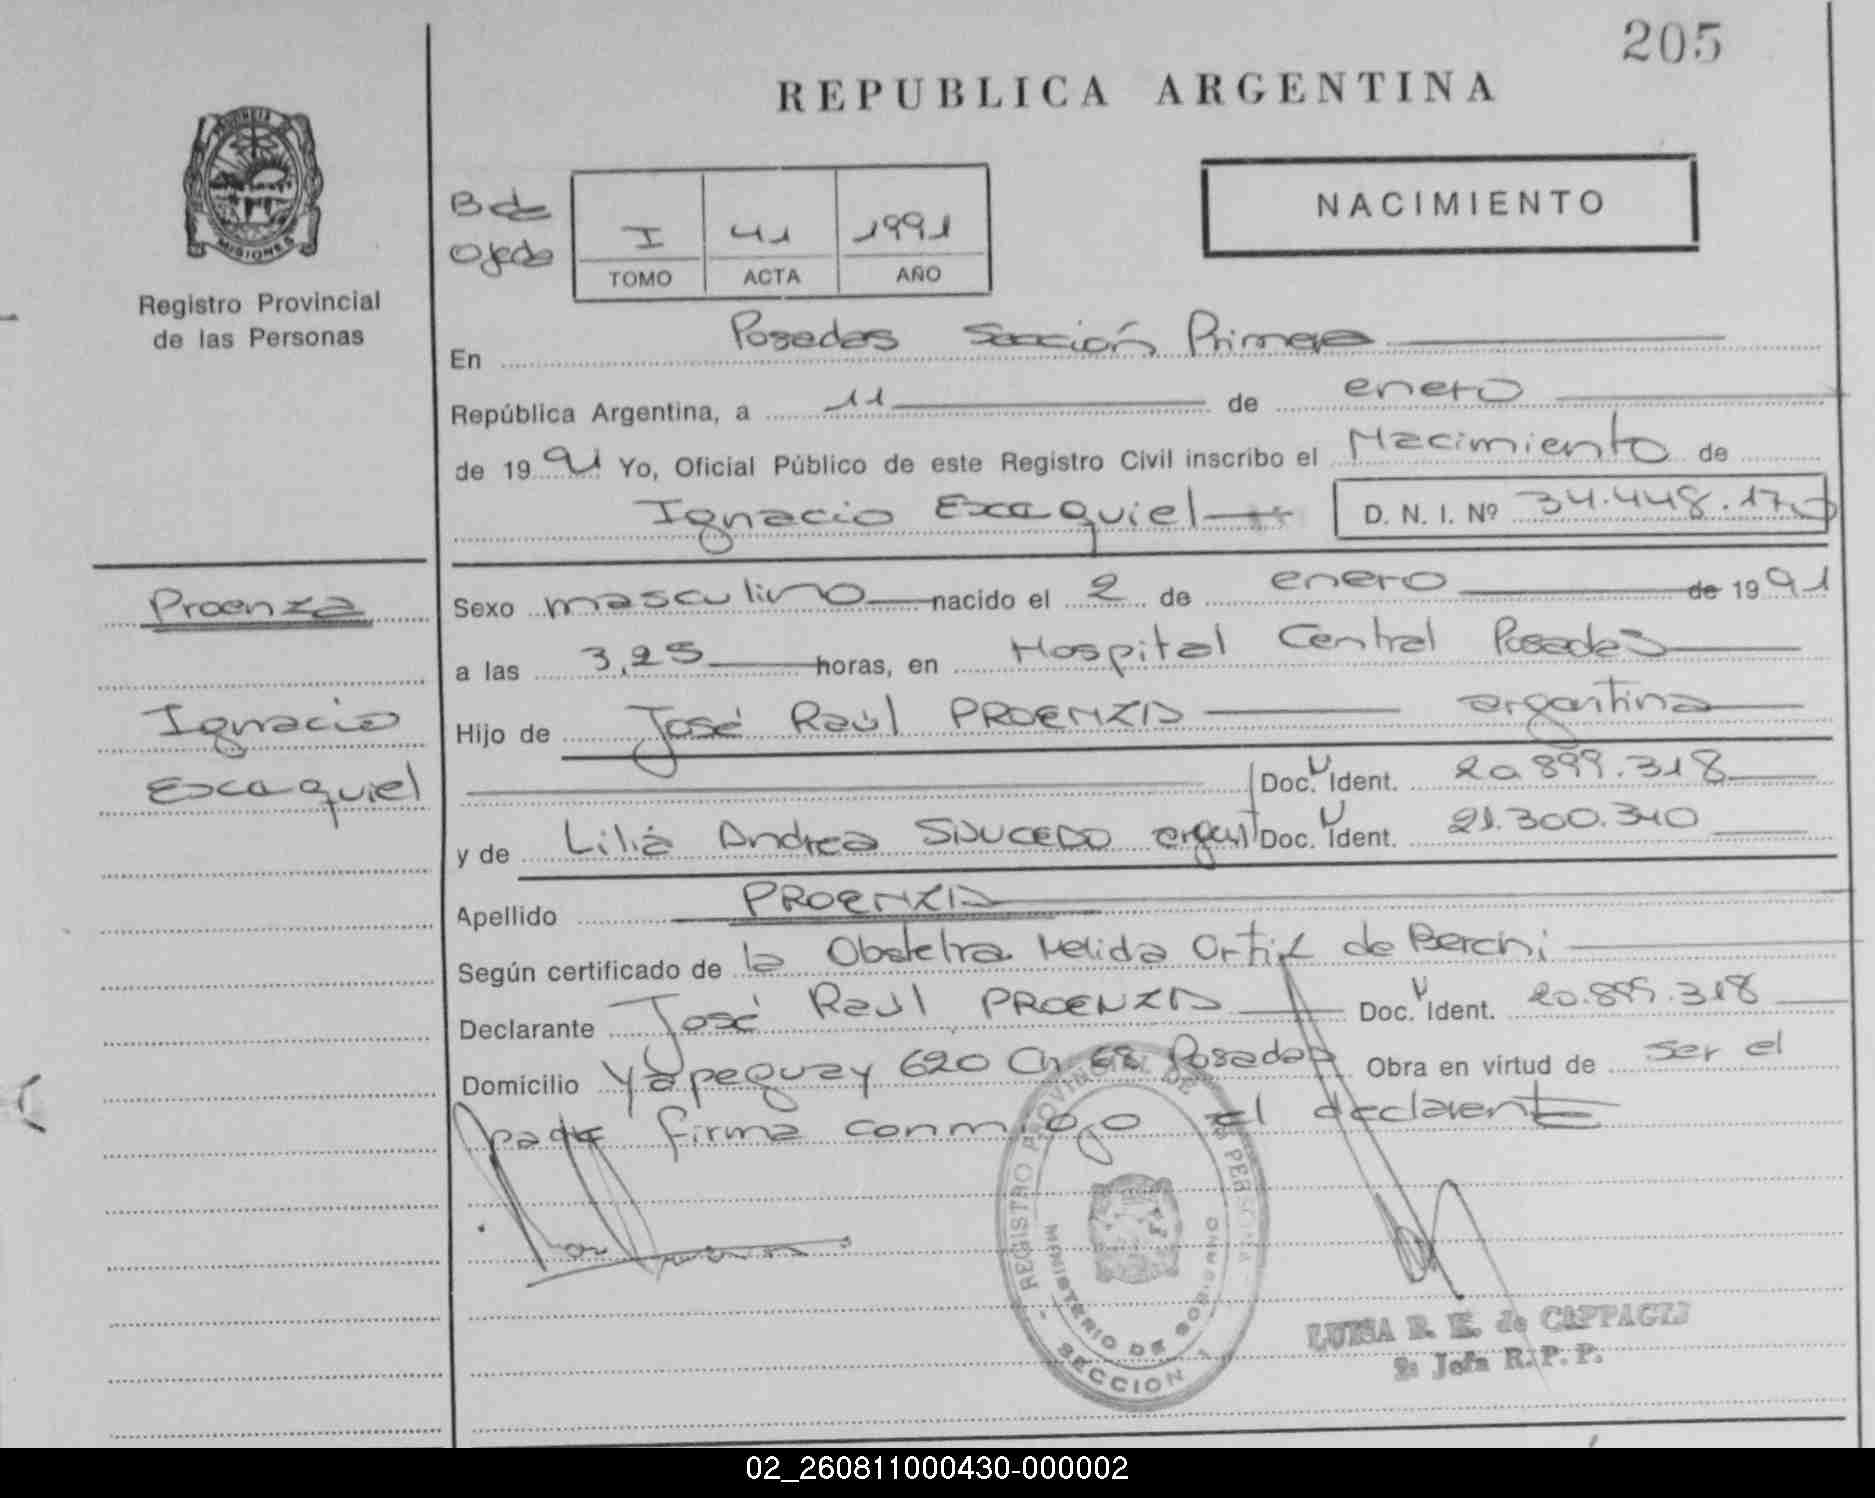 205
REPUBLICA ARGENTINA
PROVINCIA DE
MISIONES
Registro Provincial
de las Personas
B de
Ojeda
I 41 1991
TOMO ACTA AÑO
NACIMIENTO
En Posadas Sección Primera
República Argentina, a 11 de enero
de 1991 Yo, Oficial Público de este Registro Civil inscribo el Nacimiento de
Ignacio Exequiel D. N. I. Nº 34.448.170
Proenza
Ignacio
Exequiel
Sexo masculino nacido el 2 de enero de 1991
a las 3,25 horas, en Hospital Central Posadas
Hijo de José Raúl PROENZA argentina
Doc. U Ident. 20.899.318
y de Lilia Andrea SAUCEDO argent Doc. U Ident. 21.300.340
Apellido PROENZA
Según certificado de la Obstetra Nelida Ortiz de Berchi
Declarante José Raul PROENZA Doc. U Ident. 20.899.318
Domicilio Yapeguay 620 Ch 68 Posadas Obra en virtud de ser el
padre firma conmigo el declarante
REGISTRO PROVINCIAL DE LAS PERSONAS
MINISTERIO DE GOBIERNO
SECCION 1
LUISA R. K. de CAPPAGLI
2: Jefa R. P. P.
02_260811000430-000002